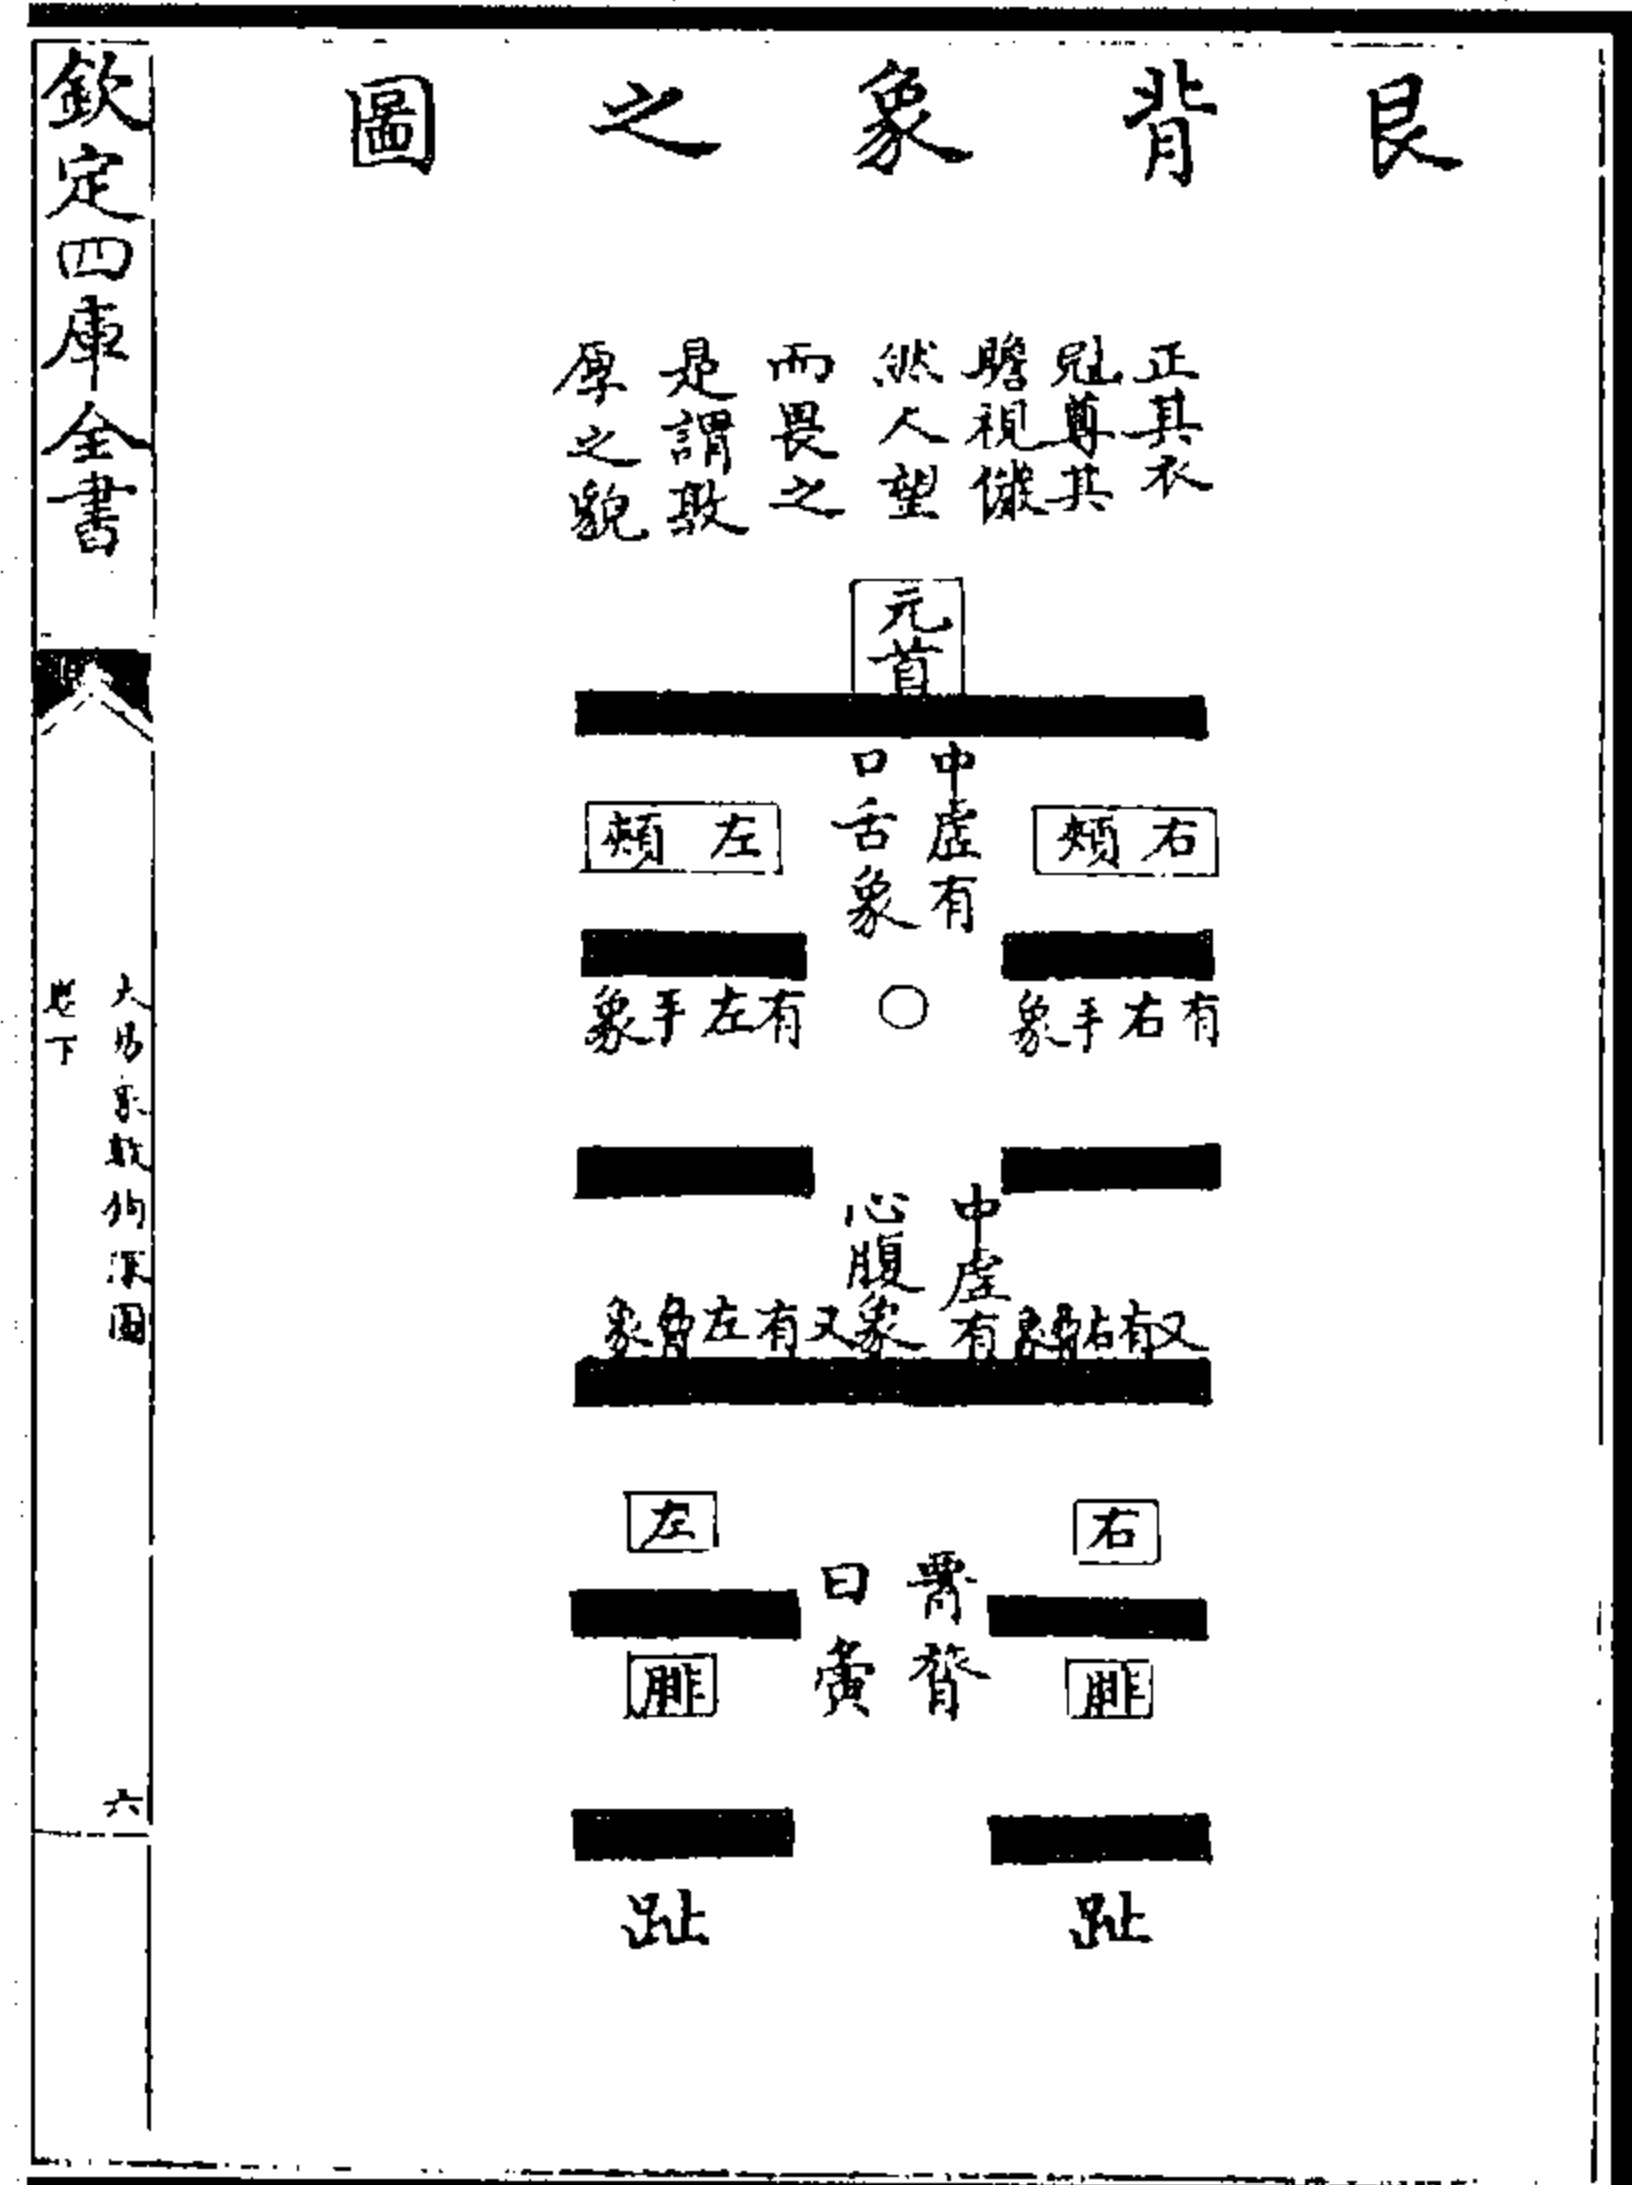 艮背象之圖
正其衣
冠尊其
瞻視儼
然人望
而畏之
是謂敦
厚之貌
元首
中虛有
口舌象
右頰
左頰
有右手象
有左手象
中虛有
心腹象
又有右
又有左
象
右
左
胃
曰
腓
腓
趾
趾
欽定四庫全書
大易象數鉤深圖
卷下
六